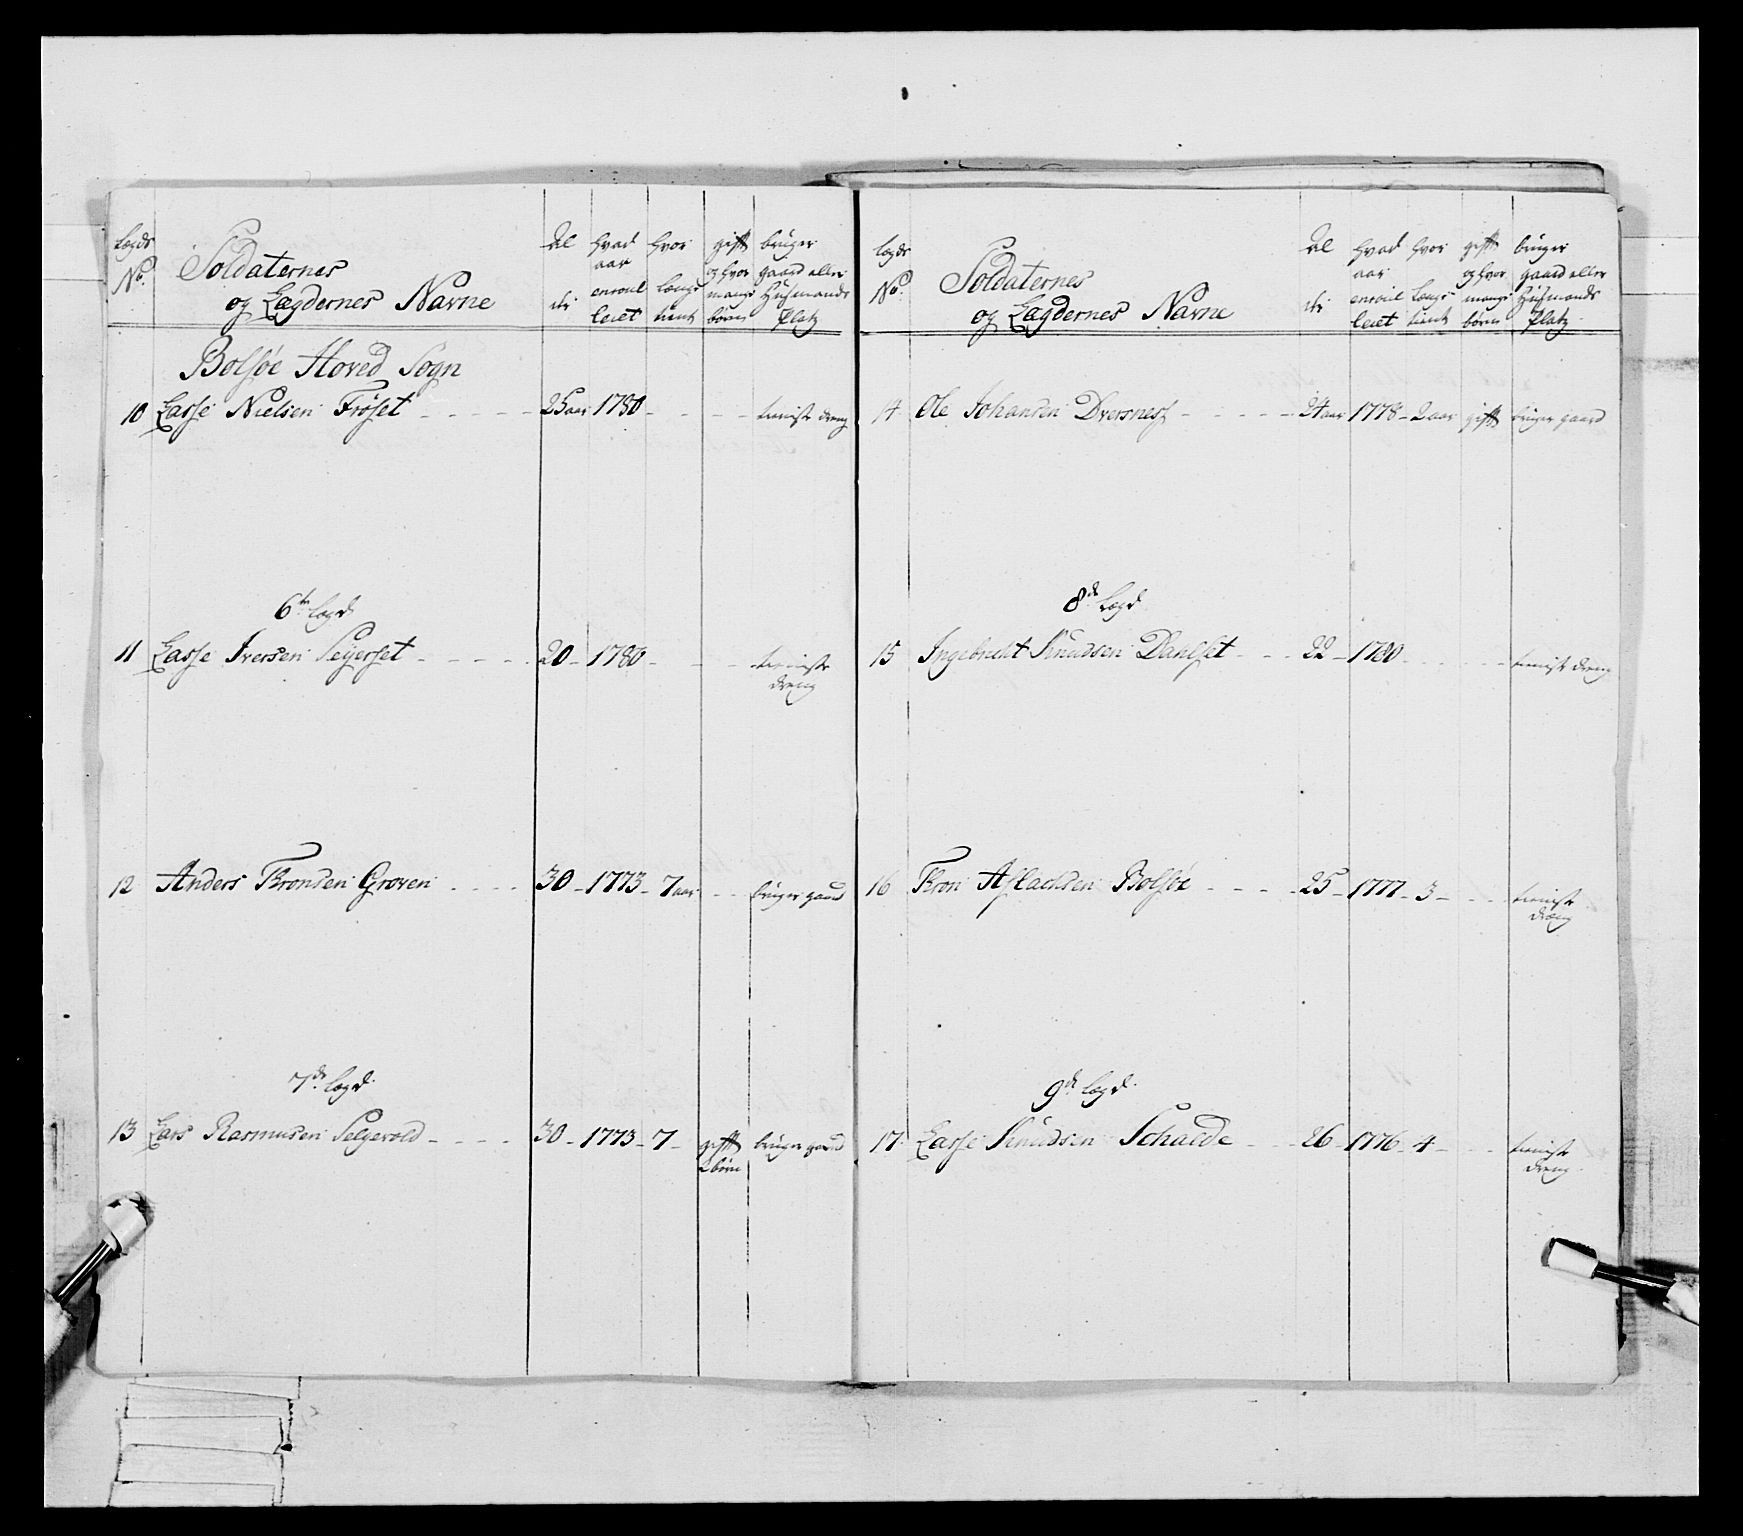 Lægds No. Soldaternes og Lægdernes Navne Al der hvad aar enroul leret hvor længe tient gift og hvor mange børn bruger gaard eller Huusmands Platz
Bolsøe Hoved Sogn
10 Lasse Nielsen Frøset - - - - - 25 aar 1780 - - - - - tieniste dreng
6te Lægd
11 Lasse Iversen Seyerset - - - - - 20 - 1780 - - - - tieniste dreng
12 Anders Tronsen Groven - - - - 30 - 1773 - 7 aar - - bruger gaard
7de Lægd
13 Lars Rasmusen Selgevold - - - - 30 - 1773 - 7 - gift 2 børn bruger gaard
Lægds No. Soldaternes og Lægdernes Navne Al der hvad aar enroul leret hvor længe tient gift og hvor mange børn bruger gaard eller Huusmands Platz
14 Ole Johansen Dversnes - - - - - 24 aar 1778 - 2 aar gift bruger gaard
8de Lægd
15 Ingebrecht Knudsen Dahlset - - - 22 - 1780 - - - - - tieniste dreng
16 Tron Aslachsen Bolsøe - - - - 25 - 1777 - 3 - - - - tieniste dreng
9de Lægd
17 Lasse Knudsen Schalde - - - 26 - 1776 - 4 - - - - tieniste dreng